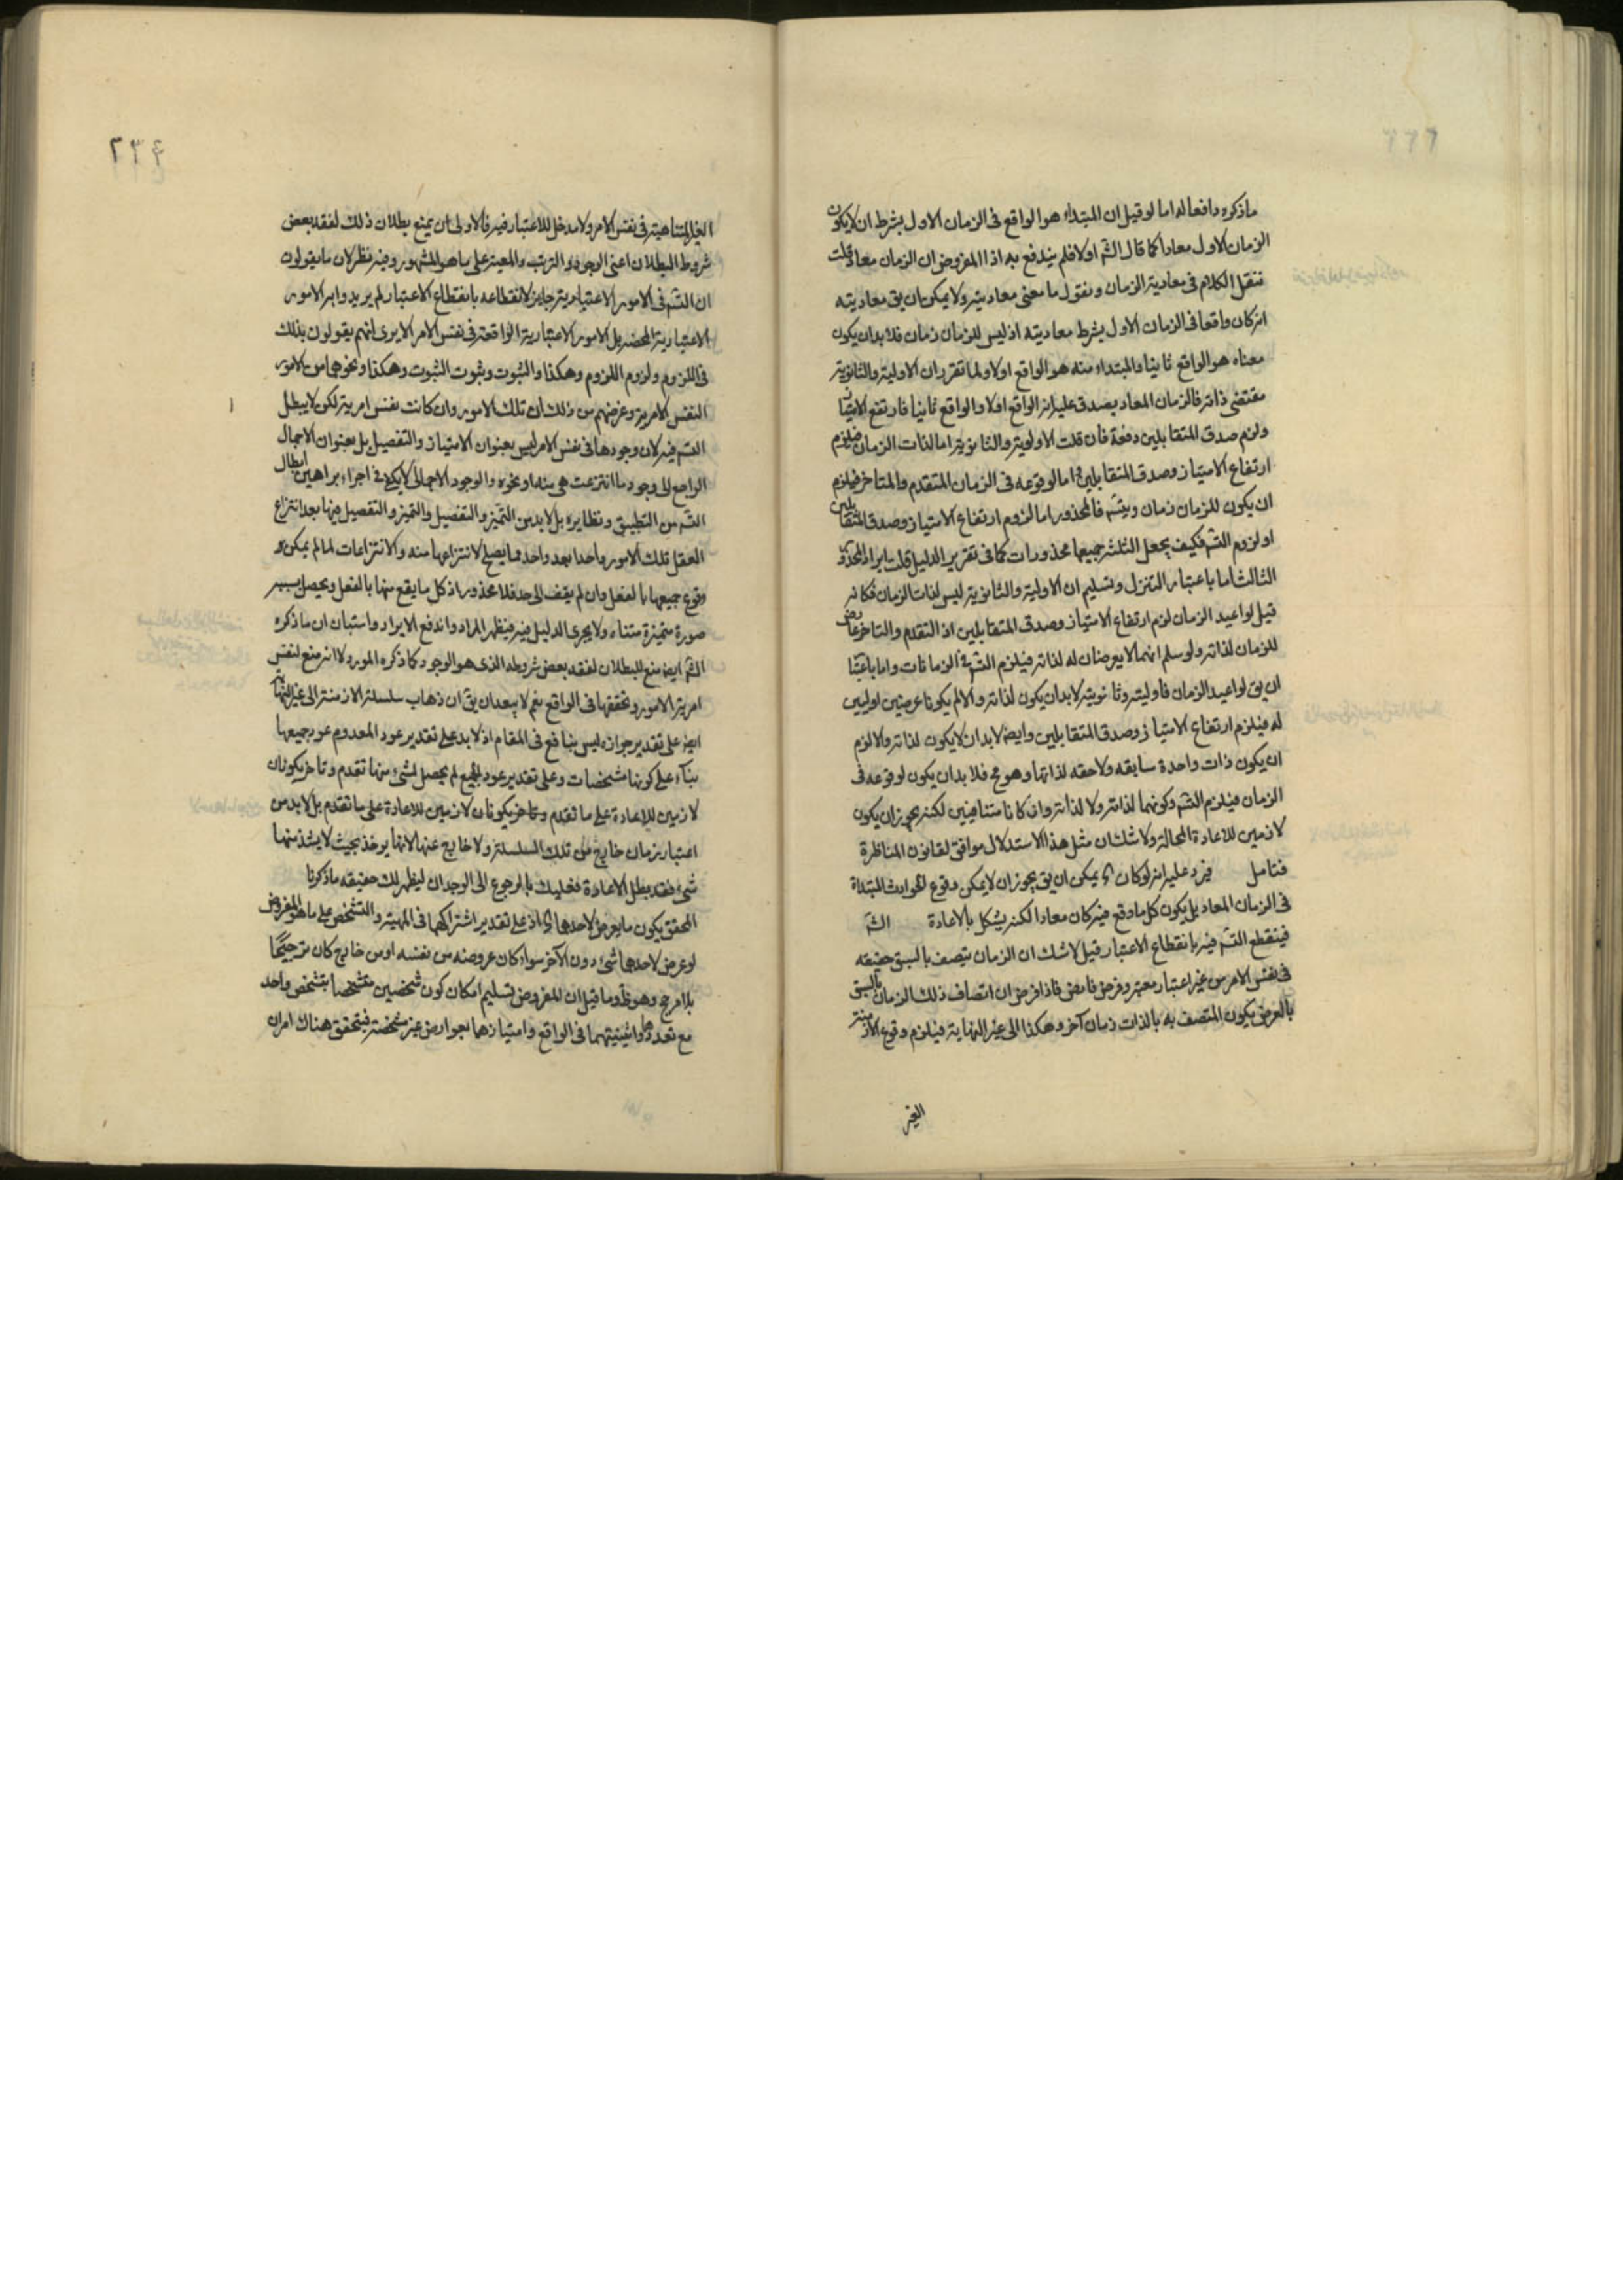 ماذكره دافعا له اما لو قيل ان المبتداء هو الواقع فى الزمان الاول بشرط ان لايكون
الزمان الاول معادا كما قال الشم اولا فلم يندفع به اذا المفروض ان الزمان معاد قلت
ننقل الكلام فى معادية الزمان ونقول ما معنى معاديته ولا يمكن ان يق معاديته
انه كان واقعا فى الزمان الاول بشرط معاديته اذ ليس للزمان زمان فلا بد ان يكون
معناه هو الواقع ثانيا والمبتداء منه هو الواقع اولا ولما تقرر ان الاولية والثانوية
مقتضى ذاته فالزمان المعاد يصدق عليه انه الواقع اولا والواقع ثانيا فارتفع الامتياز
ولزم صدق المتقابلين دفعة فان قلت الاولوية والثانوية اما لذات الزمان فيلزم
ارتفاع الامتياز وصدق المتقابلين اما لوقوعه فى الزمان المتقدم والمتاخر فيلزم
ان يكون للزمان زمان ويتسم فالمحذور اما لزوم ارتفاع الامتياز وصدق المتقابلين
او لزوم التسم فكيف يجعل الثلثة جميعها محذورات كما فى تقرير الدليل قلت ايراد المحذور
الثالث اما باعتبار التنزل وتسليم ان الاولية والثانوية ليس لذات الزمان فكانه
قيل لو اعيد الزمان لزم ارتفاع الامتياز وصدق المتقابلين اذ التقدم والتاخر عارض
للزمان لذاته ولو سلم انهما لا يعرضان له لذاته فيلزم التسم فى الزمانات واما باعتبار
ان يق لو اعيد الزمان فاوليته وثانويته لابد ان يكون لذاته والا لم يكونا عرضين اوليين
له فيلزم ارتفاع الامتياز وصدق المتقابلين وايضا لابد ان لايكون لذاته والا لزم
ان يكون ذات واحدة سابقه ولاحقه لذاتها وهو مح فلا بد ان يكون لوقوعه فى
الزمان فيلزم التسم وكونهما لذاته ولا لذاته وان كانا متنافيين لكنه يجوز ان يكون
لازمين للاعادة المحالة ولا شك ان مثل هذا الاستدلال موافق لقانون المناظرة
فتامل فيرد عليه انه لوكان يمكن ان يق يجوز ان لايمكن وقوع الحوادث المبتداة
فى الزمان المعاد بل يكون كل ما وقع فيه كان معادا لكنه يشكل بالاعادة الشم
فينقطع التسم فيه بانقطاع الاعتبار قيل لاشك ان الزمان يتصف بالسبق حقيقه
فى نفس الامر من غير اعتبار معتبر وفرض فارض فاذا فرض ان اتصاف ذلك الزمان بالسبق
بالعرض يكون المتصف به بالذات زمان آخر وهكذا الى غير النهاية فيلزم وقوع الازمنة
الغير
٢٣٤
الغير المتناهية فى نفس الامر ولا مدخل للاعتبار فيه فالاولى ان يمنع بطلان ذلك لفقد بعض
شروط البطلان اعنى الوجود والترتب والمعية على ما هو المشهور وفيه نظر لان ما يقولون
ان التسم فى الامور الاعتبارية جايز لانقطاعه بانقطاع الاعتبار لم يريدوا به الامور
الاعتبارية المحضه بل الامور الاعتبارية الواقعة فى نفس الامر الا يرى انهم يقولون بذلك
فى اللزوم ولزوم اللزوم وهكذا والثبوت وثبوت الثبوت وهكذا ونحوها من الامور
النفس الامرية وغرضهم من ذلك ان تلك الامور وان كانت نفس امرية لكن لا يبطل
التسم فيه لان وجودها فى نفس الامر ليس بعنوان الامتياز والتفصيل بل بعنوان الاجمال
الراجع الى وجود ما انتزعت هى منه او نحوه والوجود الاجمالى لا يكفى فى اجراء براهين ابطال
التسم من التطبيق ونظايره بل لابد من التميز والتفصيل والتميز والتفصيل فيها بعد انتزاع
العقل تلك الامور واحدا بعد واحد مما يصلح لانتزاعها منه والانتزاعات لما لم يمكن
وقوع جميعها بالفعل وان لم يقف الى حد فلا محذور اذ كل ما يقع منها بالفعل ويحصل بسببه
صورة متميزة متناه ولا يجرى الدليل فيه فيظهر المراد واندفع الايراد واستبان ان ماذكره
الشم ايضا منع للبطلان لفقد بعض شروطه الذى هو الوجود كما ذكره المورد لا انه منع لنفس
امرية الامور وتحققها فى الواقع نعم لا يبعد ان يق ان ذهاب سلسلة الازمنة الى غير النهاية
ايضا على تقدير جوازه ليس بنافع فى المقام اذ لابد على تقدير عود المعدوم عود جميعها
بناء على كونها مشخصات وعلى تقدير عود الجميع لم يحصل لشىء منها تقدم وتاخر يكونان
لازمين للاعادة على ما تقدم وتاخر يكونان لازمين للاعادة على ما تقدم بل لابد من
اعتبار زمان خارج من تلك السلسلة ولا خارج عنها لانها يوخذ بحيث لا يشذ منها
شىء فقد بطل الاعادة فعليك بالرجوع الى الوجدان ليظهر لك حقيقه ماذكرنا
المحقق يكون ما يعرض لاحدهما اذ على تقدير اشتراكهما فى المهية والتشخص على ما هو المفروض
لو عرض لاحدهما شىء دون الآخر سواء كان عروضه من نفسه او من خارج كان ترجيحا
بلا مرجح وهو ظ وما قيل ان المفروض تسليم امكان كون شخصين متشخصا بتشخص واحد
مع تعددهما واثنينيتهما فى الواقع وامتيازهما بعوارض غير مشخصة فيتحقق هناك امران